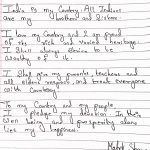 India is my Country All Indians
are my brothers and Sisters.
I love my Country and I am proud
of its rich and varied heritage.
I Shall always Strive to be
worthy of it.
I Shall give my parents, teachers and
all elders respect and treat everyone
with Courtesy.
To my Country and my people,
I pledge my devotion. In their
well being and prosperity alone
lies my happiness.